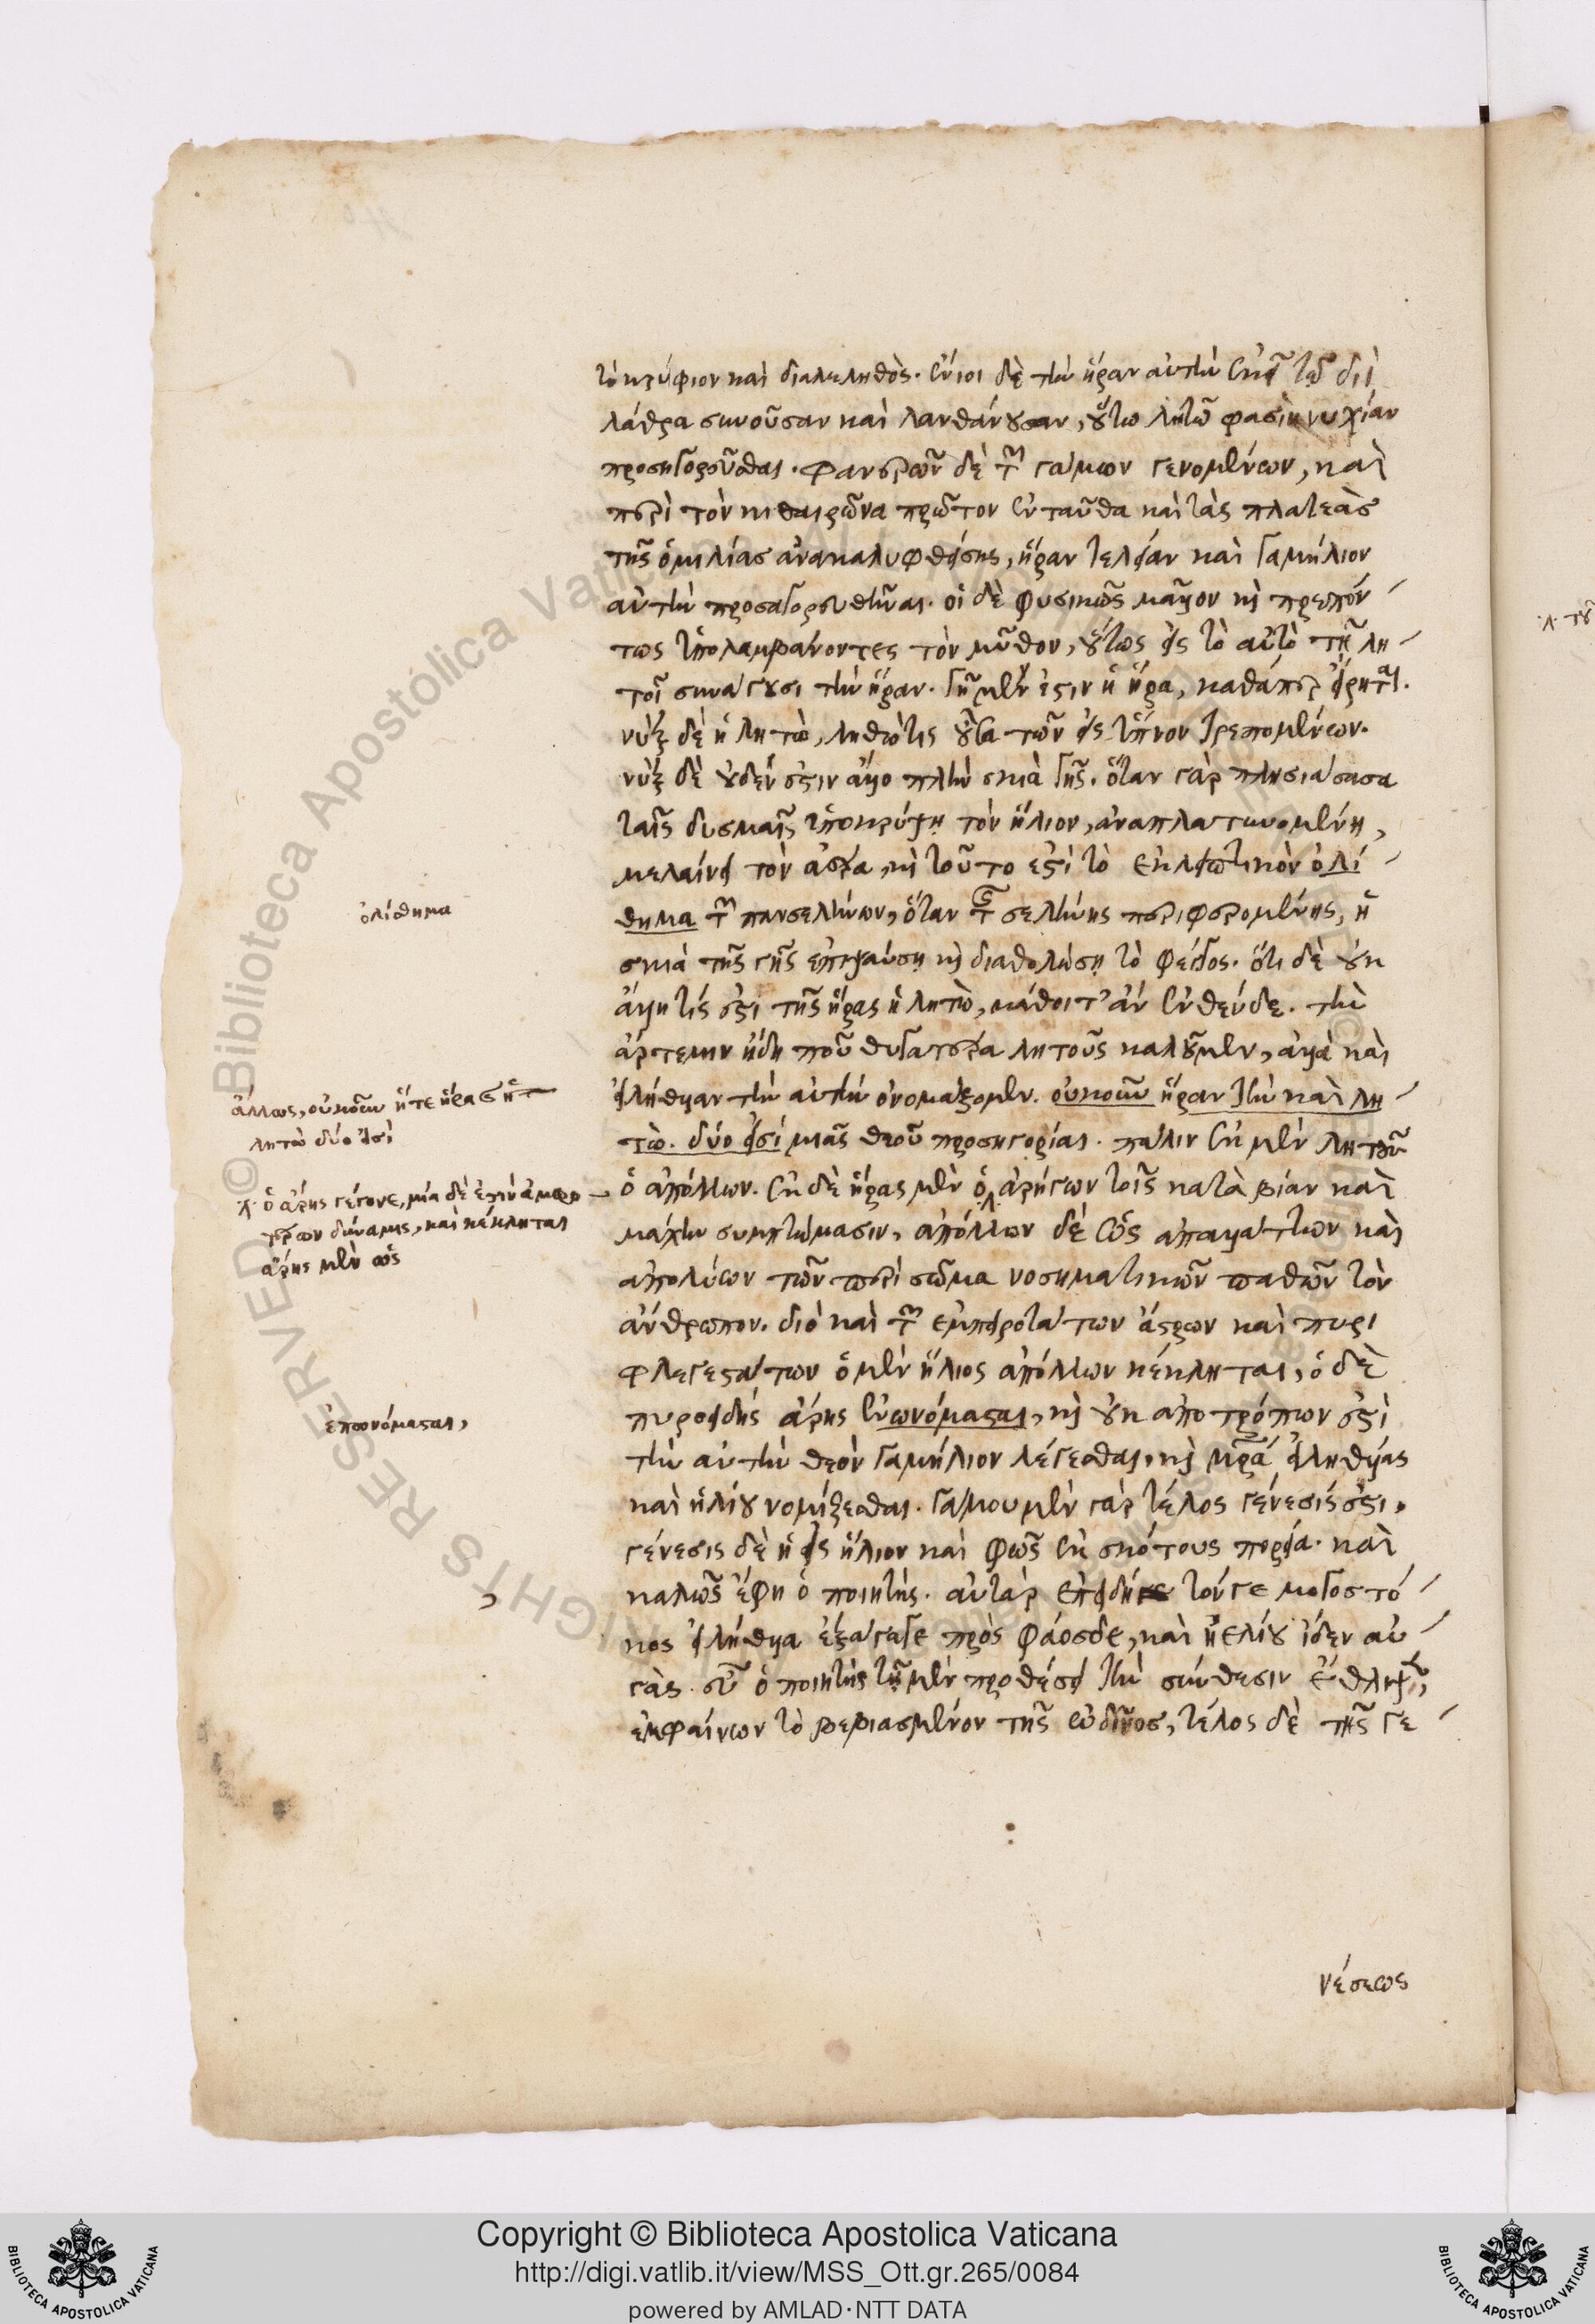 τὸ κρύφιον καὶ διαλεληθὸς. ἔνιοι δὲ τὴν ἥραν αὐτὴν ἐκεῖ τῷ διὶ
λάθρα συνοῦσαν καὶ λανθάνουσαν, οὕτω λητὼ φασὶ νυχίαν
προσηγορεῦσθαι. φανερῶν δὲ τῶν γάμων γενομένων, καὶ
περὶ τὸν κιθαιρῶνα πρῶτον ἐνταῦθα καὶ τὰς πλατεὰς
τῆς ὁμιλίας ἀνακαλυφθείσης, ἥραν τελείαν καὶ γαμήλιον
αὐτὴν προσαγορευθῆναι. οἱ δὲ φυσικῶς μᾶλλον καὶ πρεπόν
τως ὑπολαμβάνοντες τὸν μῦθον, οὕτως εἰς τὸ αὐτὸ τῇ λη
τοῖ συνάγουσι τὴν ἥραν. γῆ μέν ἐστιν ἡ ἥρα, καθάπερ εἴρηται.
νὺξ δὲ ἡ λητὼ, ληθώτις οὖσα τῶν εἰς ὕπνον τρεπομένων.
νὺξ δὲ οὐδέν ἐστιν ἄλλο πλὴν σκιὰ γῆς. ὅταν γὰρ πλησιάσασα
ταῖς δυσμαῖς ὑποκρύψῃ τὸν ἥλιον, ἀναπλατυνομένη,
μελαίνει τὸν ἀέρα, καὶ τοῦτο ἐστὶ τὸ ἐκλειπτικὸν ὀλί
θημα τῶν πανσελήνων, ὅταν τῆς σελήνης περιφερομένης, ἡ
σκιὰ τῆς γῆς ἐπιψαύσῃ καὶ διαθολώσῃ τὸ φέγγος. ὅτι δὲ οὐκ
ἄλλη τίς ἐστι τῆς ἥρας ἡ λητὼ, μάθοιτ' ἂν ἐνθένδε. τὴν
ἄρτεμιν ἤδη ποῦ θυγατέρα λητοῦς καλοῦμεν, ἀλλὰ καὶ
εἰλήθυιαν τὴν αὐτὴν ὀνομάζομεν. οὐκοῦν ἥραν τὴν καὶ λη
τὼ. δύο εἰσὶ μιᾶς θεοῦ προσηγορίαι. πάλιν ἐκ μὲν λητοῦς
ὁ ἀπόλλων. ἐκ δὲ ἥρας μὲν ὁ ἀρήγων τοῖς κατὰ βίαν καὶ
μάχην συμπτώμασιν, ἀπόλλων δὲ ὡς ἀπαλλάττων καὶ
ἀπολύων τῶν περὶ σῶμα νοσηματικῶν παθῶν τὸν
ἄνθρωπον. διὸ καὶ τῶν ἐμπειροτάτων ἄστρων καὶ πυρι
φλεγεστάτων ὁ μὲν ἥλιος ἀπόλλων κέκληται, ὁ δὲ
πυροειδὴς ἄρης ἐνωνόμασται, καὶ οὐκ ἀποτρόπων ἐστὶ
τὴν αὐτὴν θεὸν γαμήλιον λέγεσθαι, καὶ μητέρα εἰληθυίας
καὶ ἡλίου νομίζεσθαι. γάμου μὲν γὰρ τέλος γένεσίς ἐστι,
γένεσις δὲ ἡ εἰς ἥλιον καὶ φῶς ἐκ σκότους πορεία. καὶ
καλῶς ἔφη ὁ ποιητής. αὐτὰρ ἐπειδὴ τόνγε μογοστό
κος εἰλήθυια ἐξάγαγε πρὸς φάοσδε, καὶ ἠελίου ἴδεν αὐ
γὰς. εὖ ὁ ποιητὴς τῇ μὲν προθέσει τὴν σύνθεσιν ἔθληψεν,
ἐμφαίνων τὸ βεβιασμένον τῆς ὠδῖνος, τέλος δὲ τῆς γε
νέσεως
ὀλίσθημα
ἄλλως, οὐκοῦν ἥ τε ἥρα καὶ ἡ
λητὼ δύο εἰσὶ
λ. ὁ ἄρης γέγονε, μία δὲ ἐστὶν ἀμφο
τέρων δύναμις, καὶ κέκληται
ἄρης μὲν ὡς
ἐπωνόμασται,
λ. τοῦ
© Biblioteca Apostolica Vaticana
ALL RIGHTS RESERVED
Copyright © Biblioteca Apostolica Vaticana
http://digi.vatlib.it/view/MSS_Ott.gr.265/0084
powered by AMLAD·NTT DATA
BIBLIOTECA APOSTOLICA VATICANA
BIBLIOTECA APOSTOLICA VATICANA